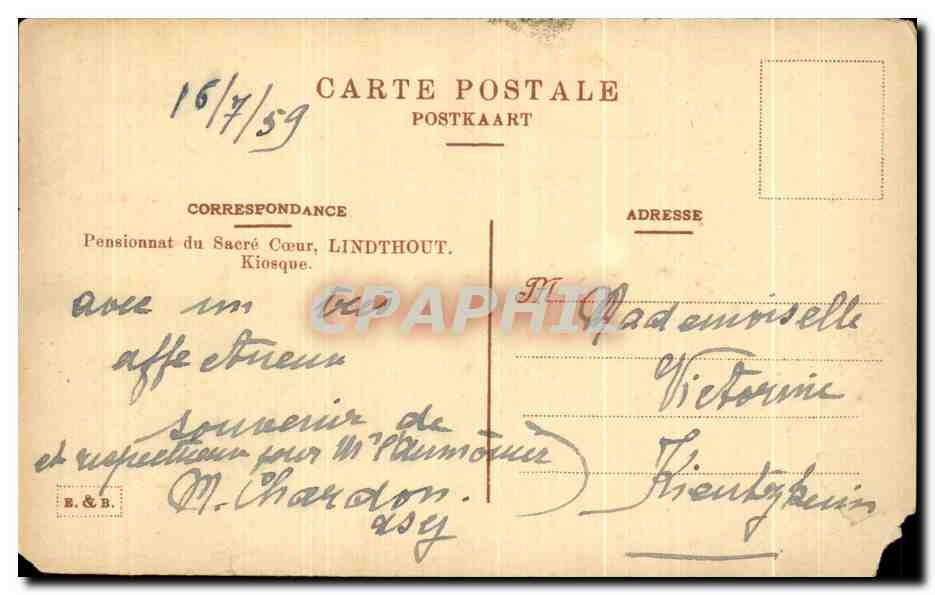 16/7/59
CARTE POSTALE
POSTKAART
CORRESPONDANCE
Pensionnat du Sacré Cœur, LINDTHOUT.
Kiosque.
avec un
affectueux
souvenir de
et respectueux pour Mr l'Aumônier
M. Chardon.
E. & B.
ADRESSE
M
Mademoiselle
Victorine
CPAPHIL